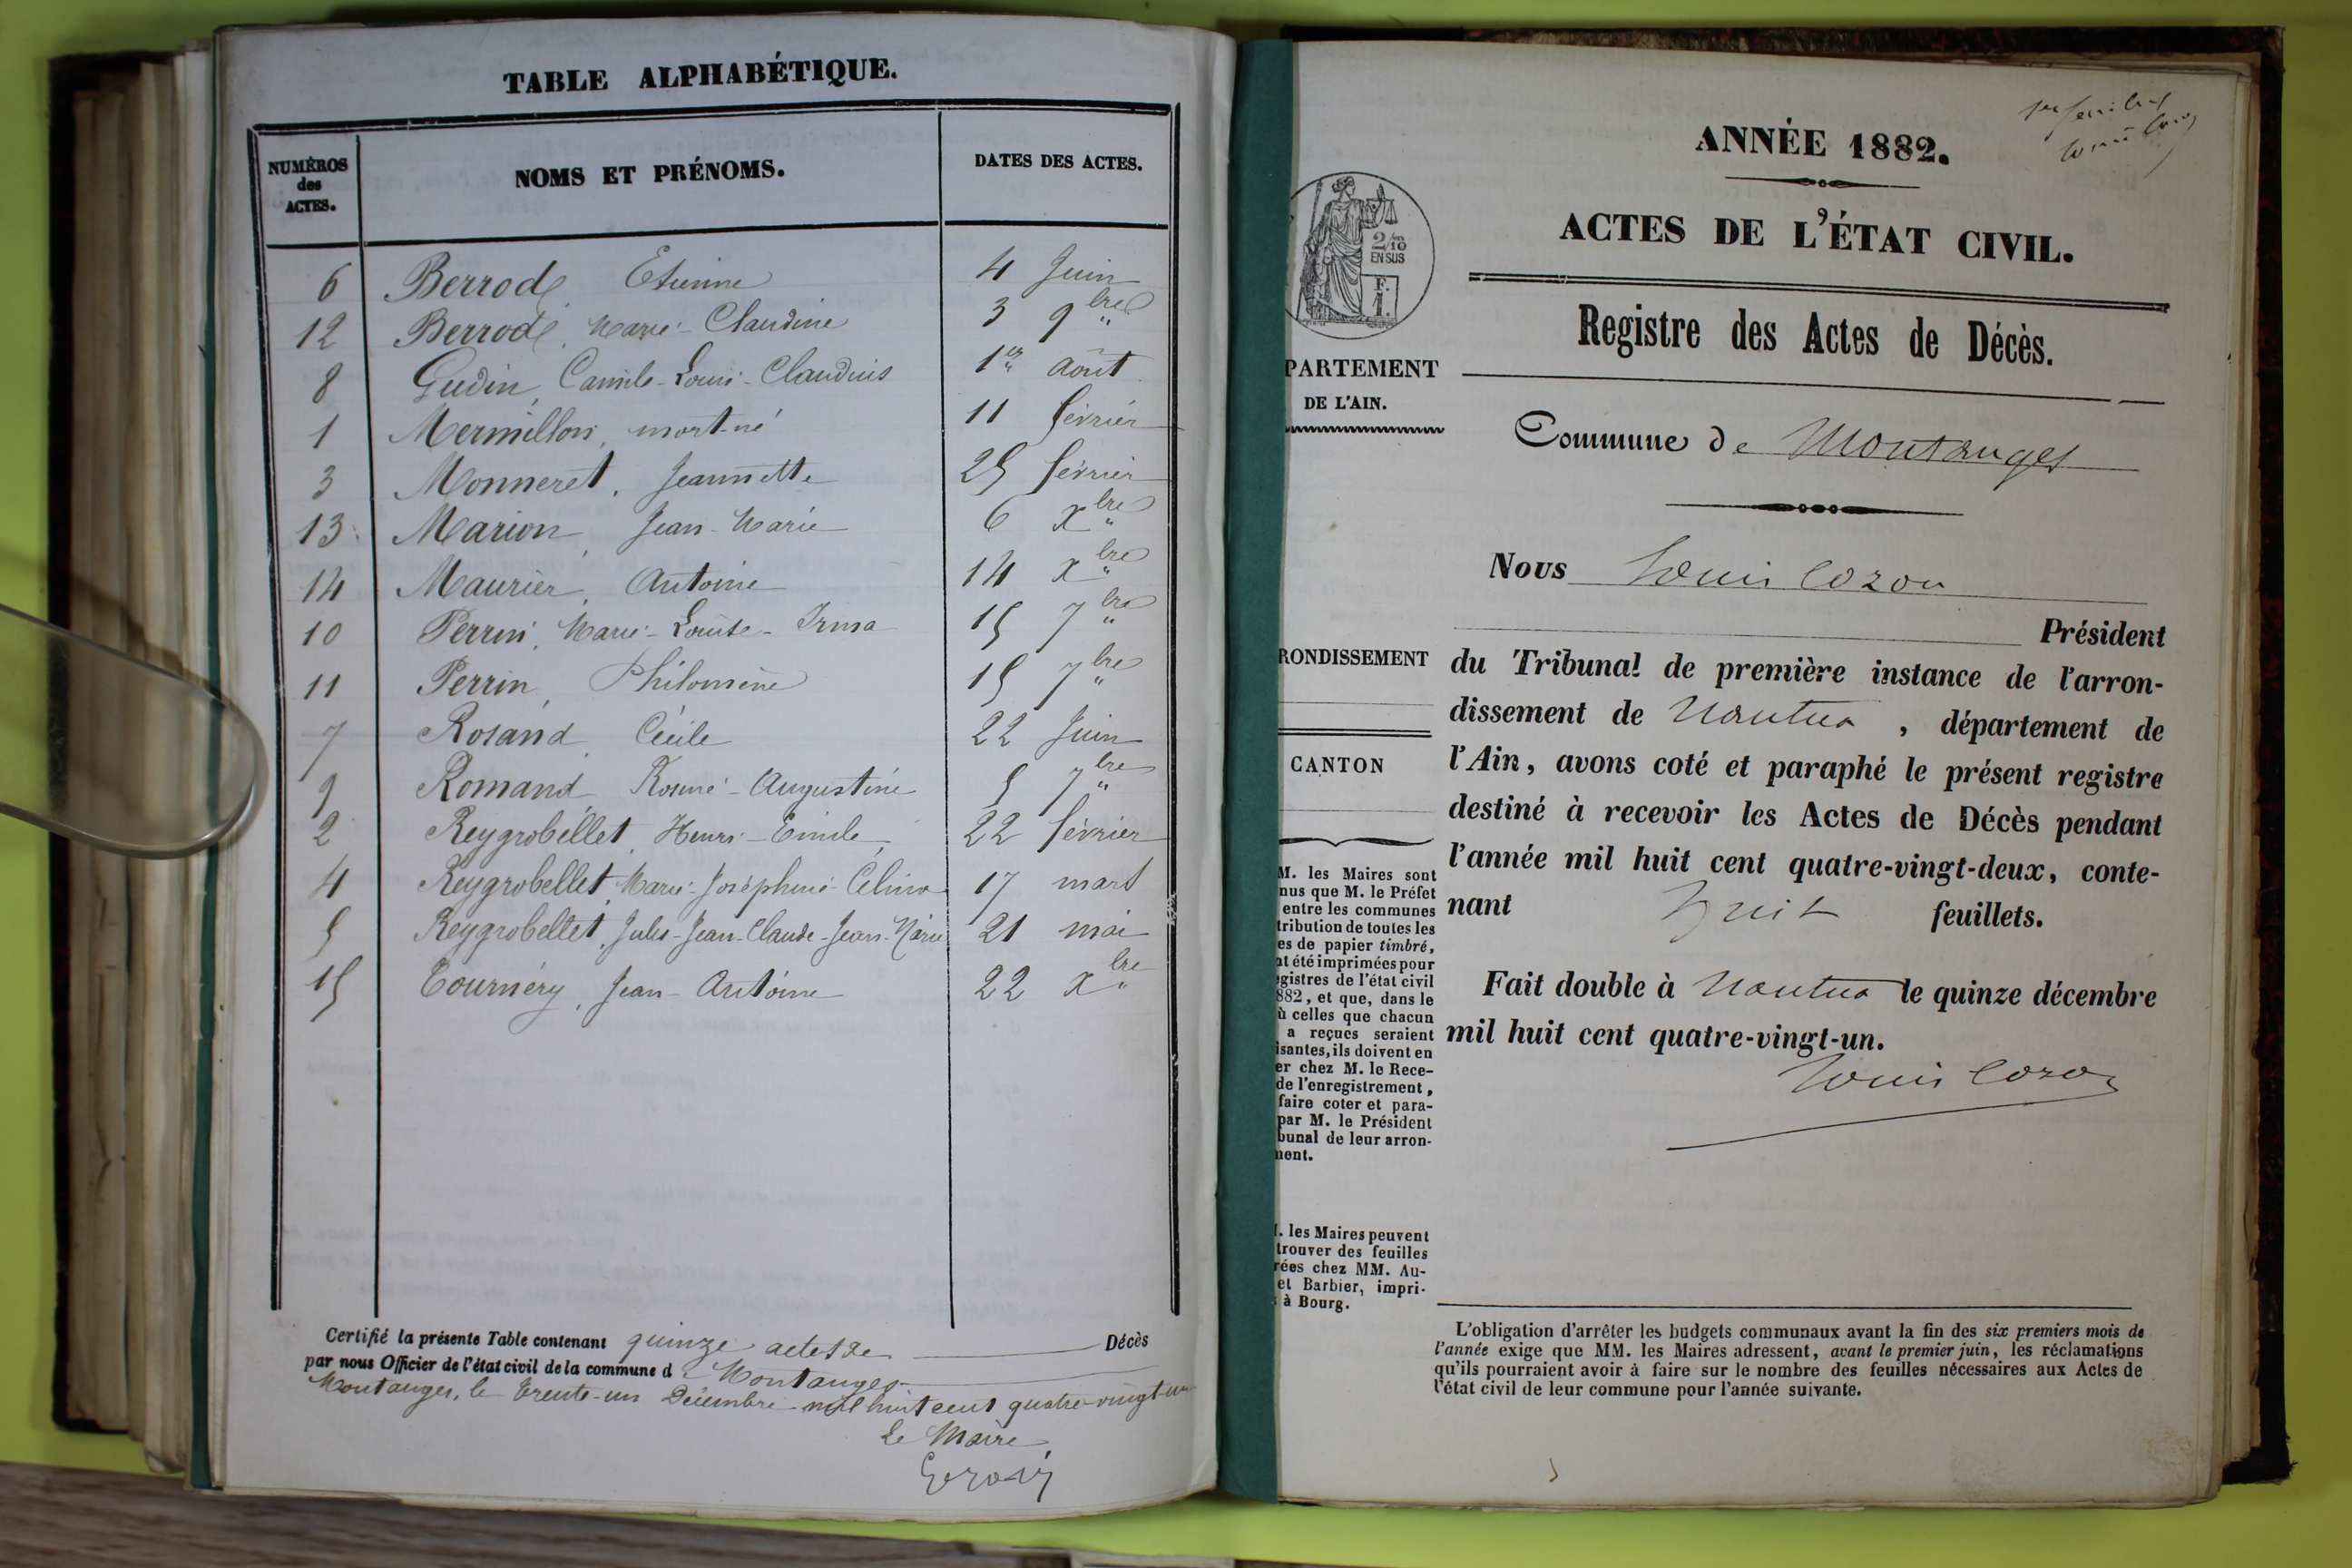 TABLE ALPHABÉTIQUE.
NUMÉROS des ACTES. NOMS ET PRÉNOMS. DATES DES ACTES.
6 Berrod, Etienne 4 Juin
12 Berrod, Marie-Claudine 3 9bre
8 Gudin, Camile-Louis-Claudius 1er Août
1 Mermillon, mort-né 11 février
3 Monneret, Jeannette 25 février
13 Marion, Jean-Marie 6 Xbre
14 Maurier, Antoine 14 Xbre
10 Perrin, Marie-Louise-Irma 15 7bre
11 Perrin, Philomène 15 7bre
7 Rosand, Cécile 22 Juin
9 Romand, Augustine 5 7bre
2 Reygrobellet, Henri-Emile 22 février
4 Reygrobellet, Marie-Joséphine-Célina 17 mars
5 Reygrobellet, Jules-Jean-Claude-Jean-Marie 21 mai
15 Tournéry, Jean-Antoine 22 Xbre
Certifié la présente Table contenant quinze actes de Décès
par nous Officier de l'état civil de la commune de Montanges
Montanges, le trente-un Décembre mil huit cent quatre-vingt-un
Le Maire,
ANNÉE 1882.
ACTES DE L'ÉTAT CIVIL.
2/10
EN SUS
F.
1.
Registre des Actes de Décès.
PARTEMENT
DE L'AIN.
Commune de Montanges
Nous Louis Cozon
Président
RONDISSEMENT
du Tribunal de première instance de l'arron-
dissement de Nantua, département de
CANTON
l'Ain, avons coté et paraphé le présent registre
destiné à recevoir les Actes de Décès pendant
l'année mil huit cent quatre-vingt-deux, conte-
nant huit feuillets.
Fait double à Nantua le quinze décembre
mil huit cent quatre-vingt-un.
Louis Cozon
M. les Maires sont
nus que M. le Préfet
entre les communes
tribution de toutes les
es de papier timbré,
nt été imprimées pour
egistres de l'état civil
882, et que, dans le
ù celles que chacun
a reçues seraient
isantes, ils doivent en
er chez M. le Rece-
de l'enregistrement,
faire coter et para-
par M. le Président
bunal de leur arron-
ment.
. les Maires peuvent
trouver des feuilles
rées chez MM. Au-
et Barbier, impri-
à Bourg.
L'obligation d'arrêter les budgets communaux avant la fin des six premiers mois de
l'année exige que MM. les Maires adressent, avant le premier juin, les réclamations
qu'ils pourraient avoir à faire sur le nombre des feuilles nécessaires aux Actes de
l'état civil de leur commune pour l'année suivante.